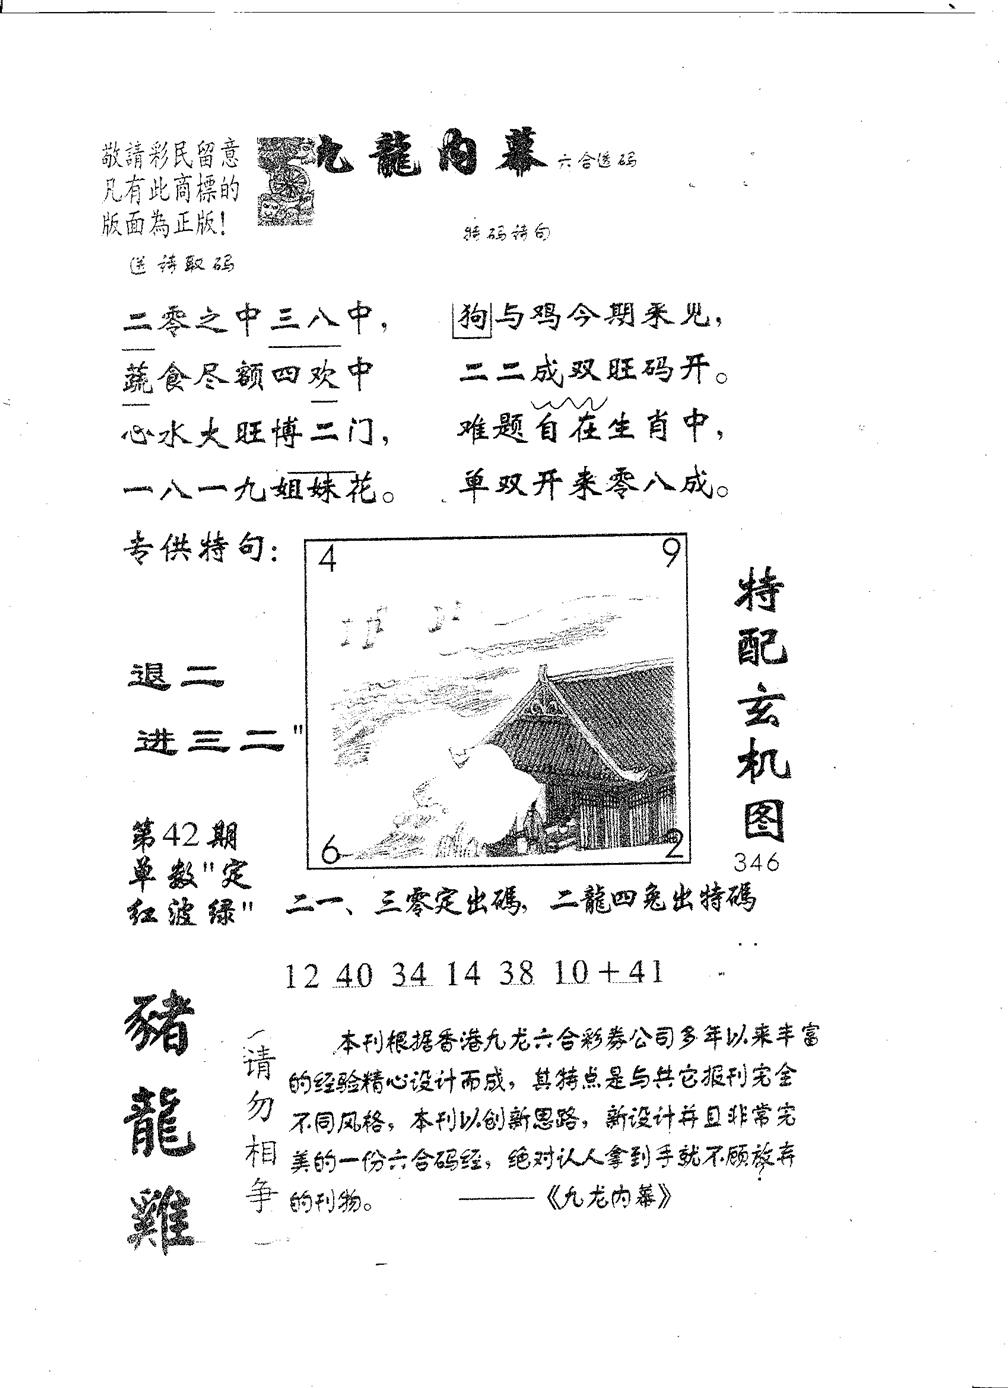 敬請彩民留意
凡有此商標的
版面為正版!
九龍内幕 六合透码
送詩取码
特码詩句
二零之中三八中，
蔬食尽额四欢中
心水大旺博二门，
一八一九姐妹花。
狗与鸡今期来见，
二二成双旺码开。
难题自在生肖中，
单双开来零八成。
专供特句：
退二
进三二"
4 9
6 2
特配玄机图
346
第42期
单数"定
红波绿"
二一、三零定出碼，二龍四兔出特碼
12 40 34 14 38 10+41
豬龍雞
请勿相争
本刊根据香港九龙六合彩券公司多年以来丰富
的经验精心设计而成，其特点是与其它报刊完全
不同风格，本刊以创新思路，新设计并且非常完
美的一份六合码经，绝对认人拿到手就不顾放弃
的刊物。 ———《九龙内幕》